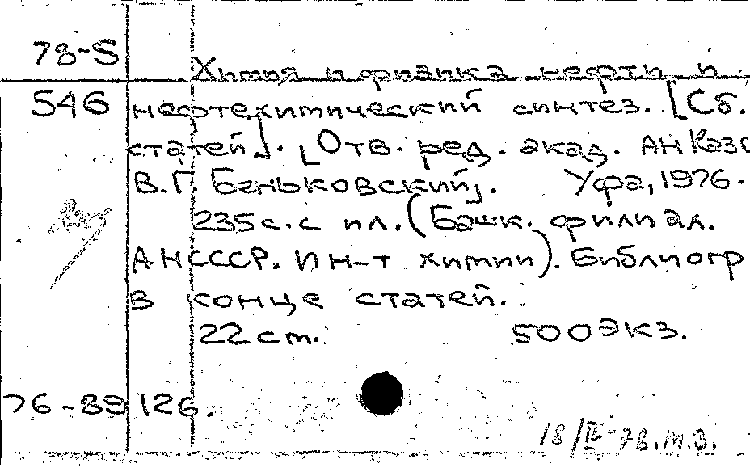 78-S
Химия и физика нефти и
546 нефтехимический синтез. [Сб.
статей]. [Отв. ред. акад. АН Казс
В.Г. Беньковский]. Уфа, 1976.
235с. с ил. (Башк. филиал.
АНСССР. Ин-т химии). Библиогр
в конце статей.
22 cm. 500 экз.
76-89126.
18/II-78. м.з.